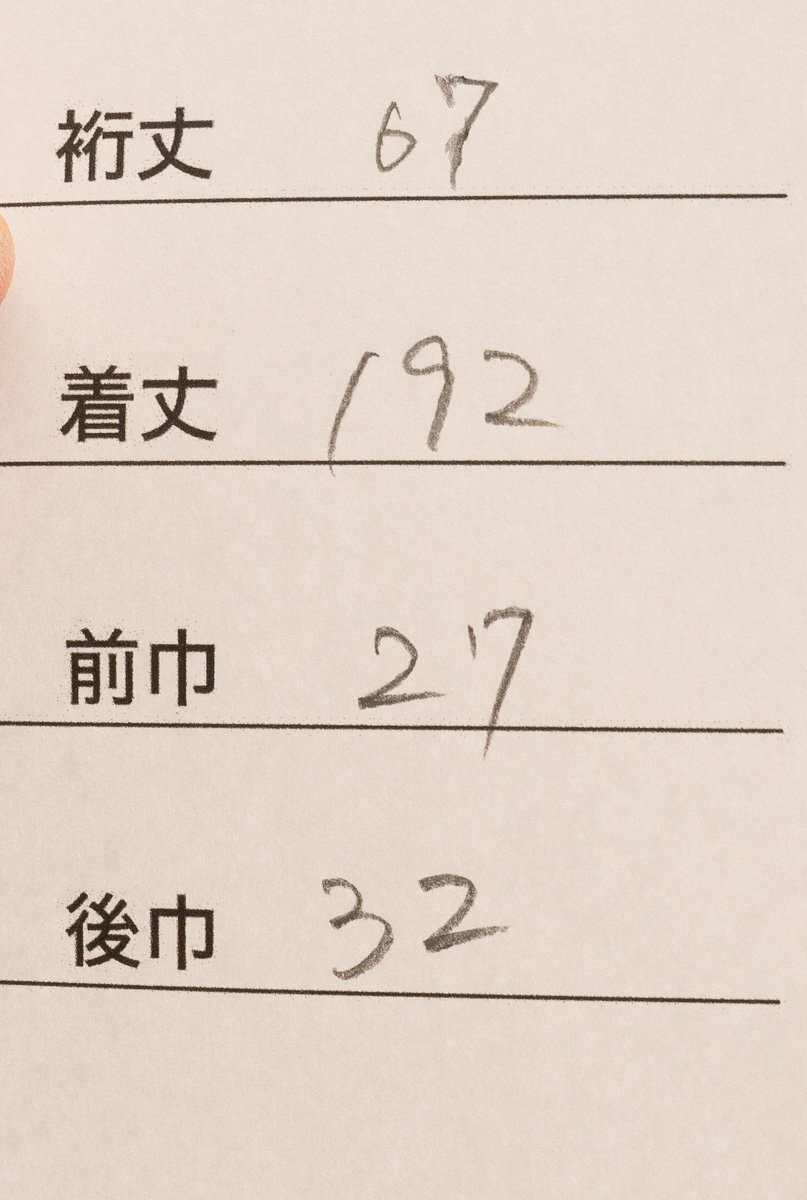 裄丈 67
着丈 192
前巾 27
後巾 32